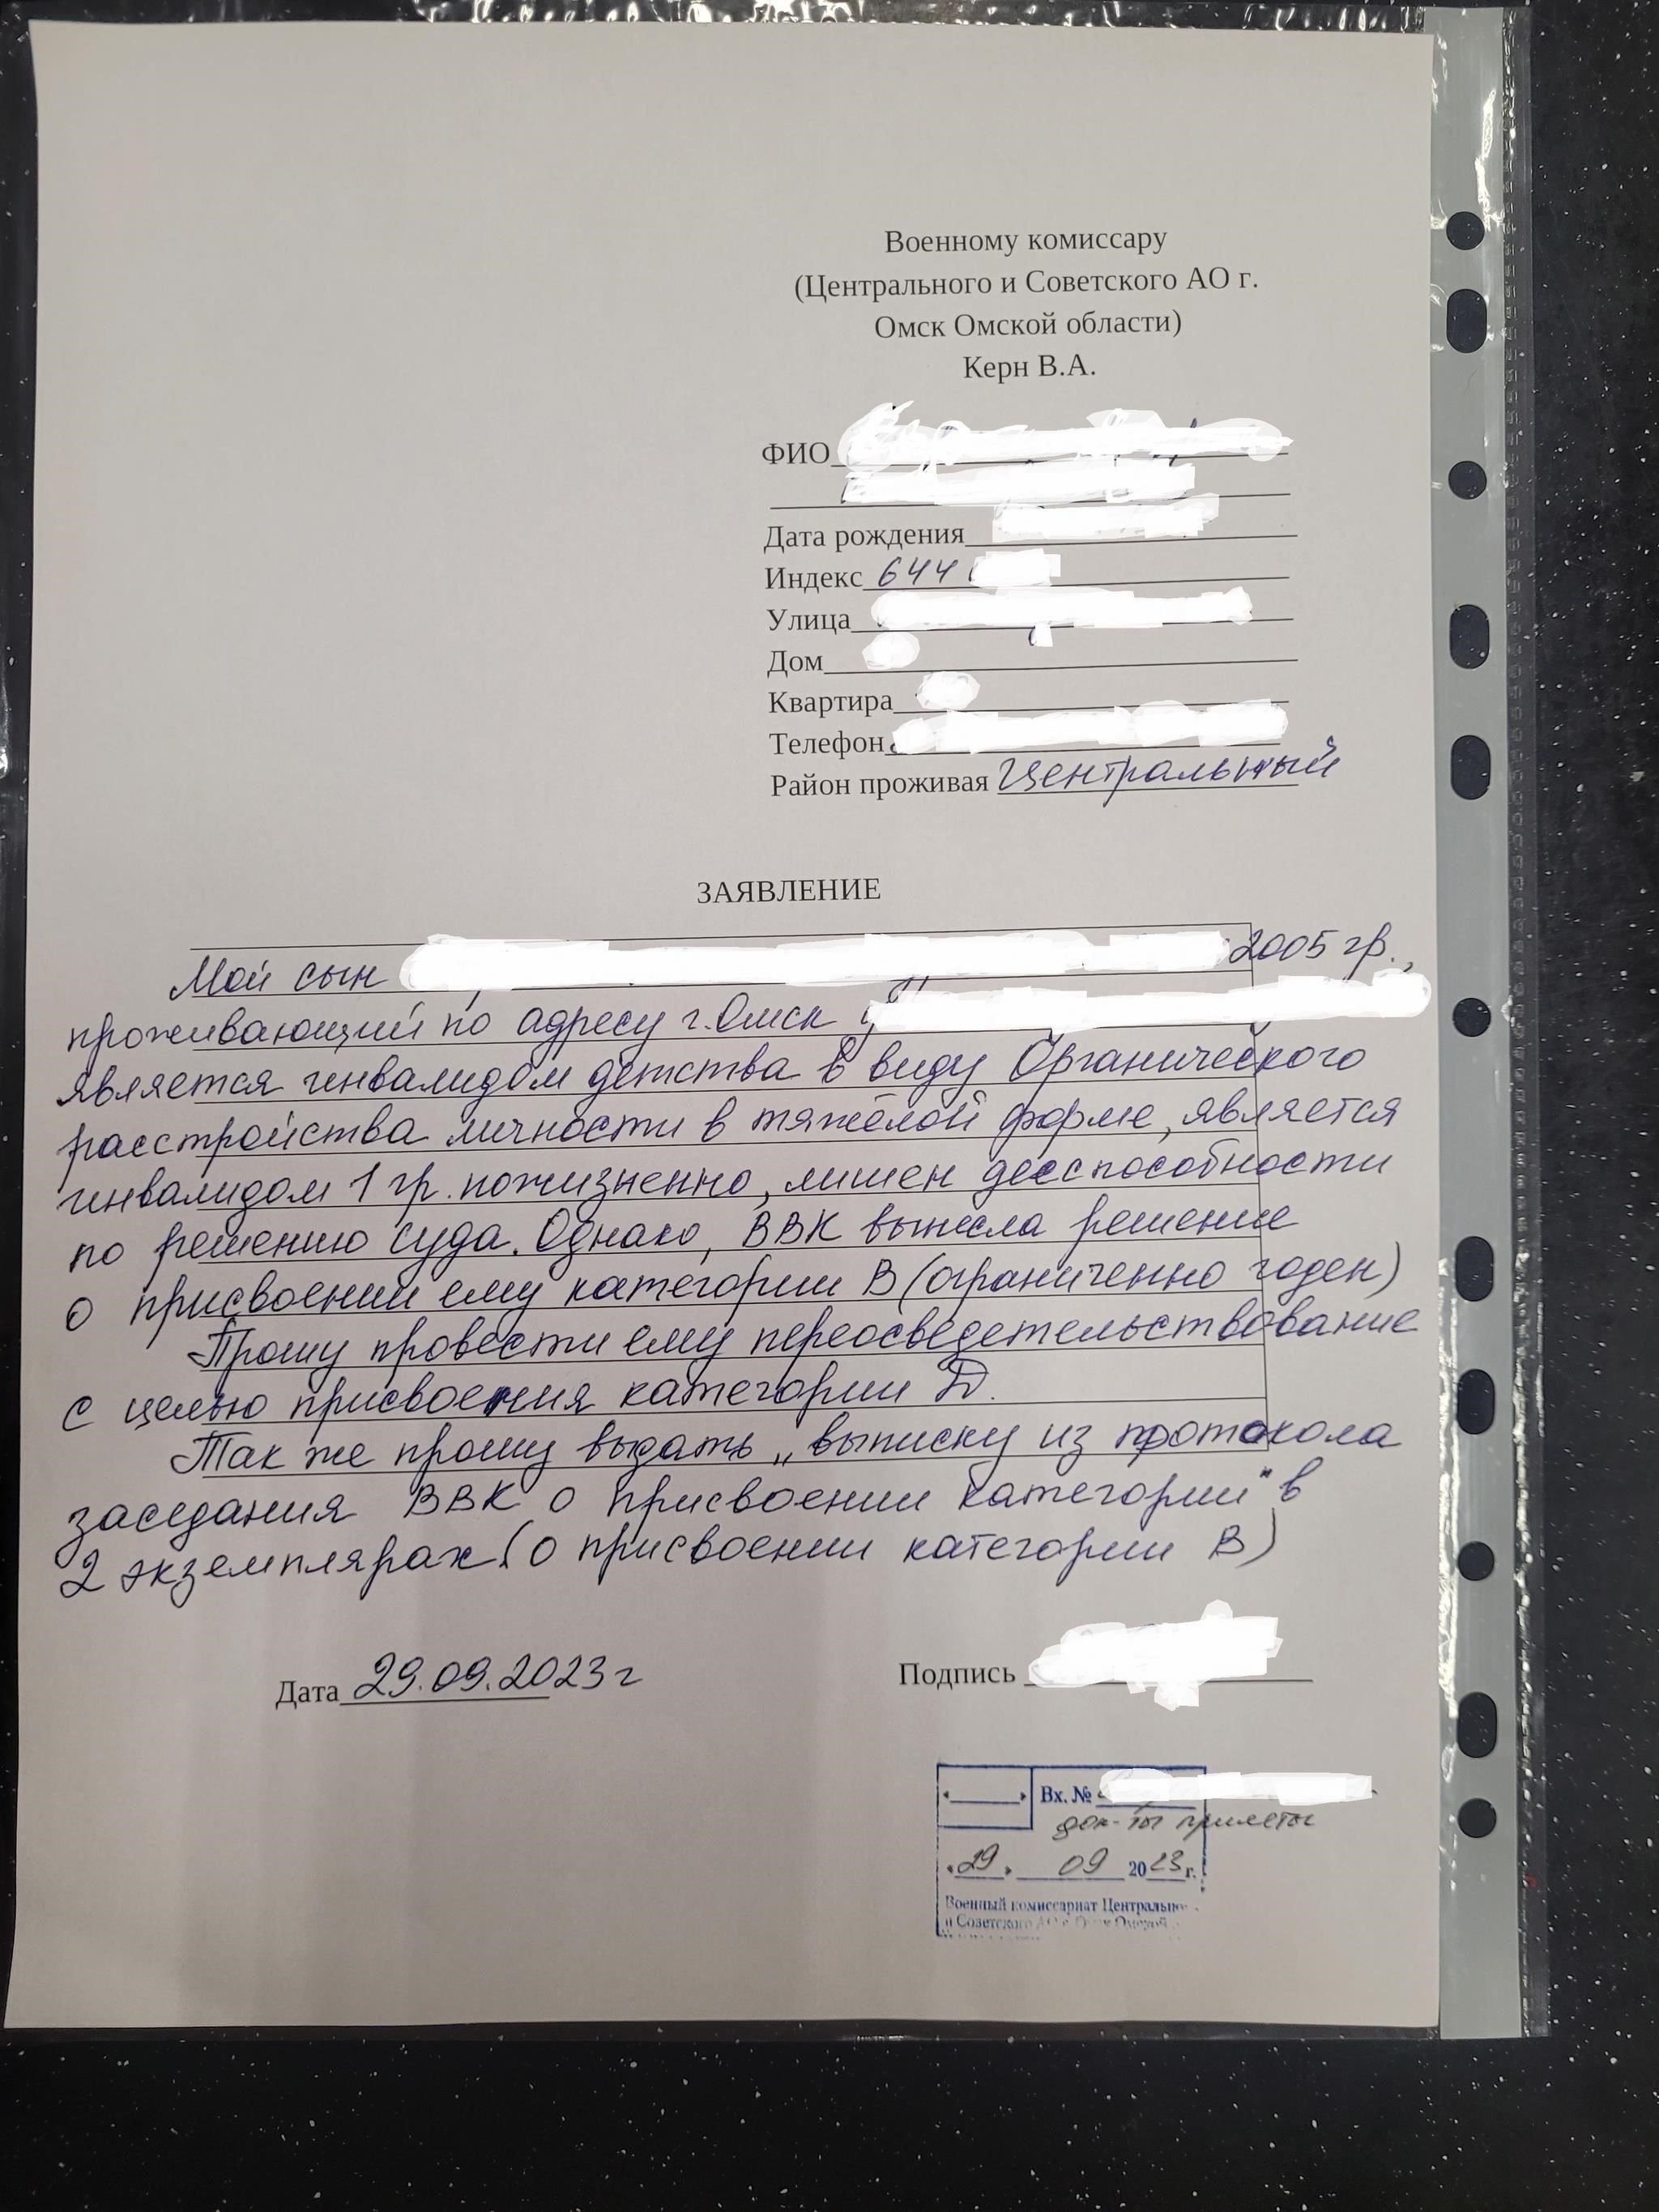 Военному комиссару
(Центрального и Советского АО г.
Омск Омской области)
Керн В.А.
ФИО
Дата рождения
Индекс 644
Улица
Дом
Квартира
Телефон
Район проживая Центральный
ЗАЯВЛЕНИЕ
Мой сын 2005 гр.,
проживающий по адресу г. Омск
является инвалидом детства в виду Органического
расстройства личности в тяжёлой форме, является
инвалидом 1 гр. пожизненно, лишен дееспособности
по решению суда. Однако, ВВК вынесла решение
о присвоении ему категории В (ограниченно годен)
Прошу провести ему переосведетельствование
с целью присвоения категории Д.
Так же прошу выдать „выписку из протокола
заседания ВВК о присвоении категории" в
2 экземплярах (о присвоении категории В)
Дата 29.09.2023г
Подпись
Вх. №
док-ты приняты
«29» 09 2023 г.
Военный комиссариат Центрально
и Советского АО г. Омск Омской